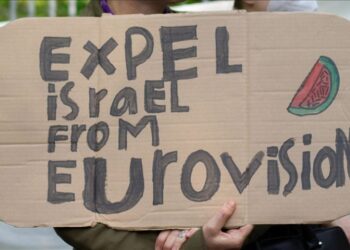 EXPEL
isRaEL
FROM
EURovision